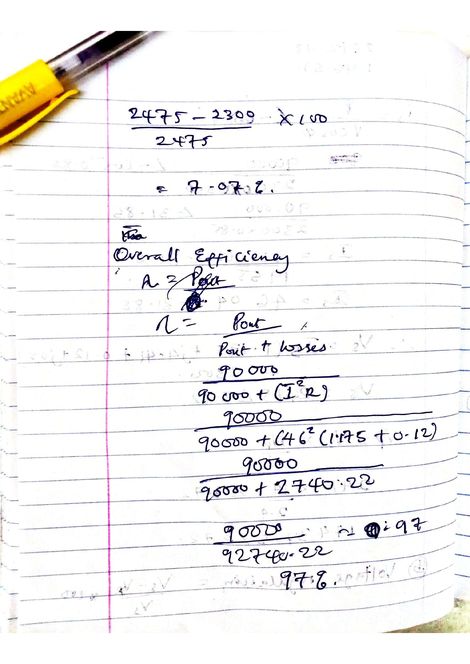 AVANT
2475 - 2309 × 100
2475
= 7.07%.
Overall Efficiency
n = Pout
n = Pout
Pout + losses
90000
90000 + (I²R)
90000
90000 + (46² (1.175 + 0.12)
90000
90000 + 2740.22
90000 ≈ .97
92740.22
97%.
(b) Voltage